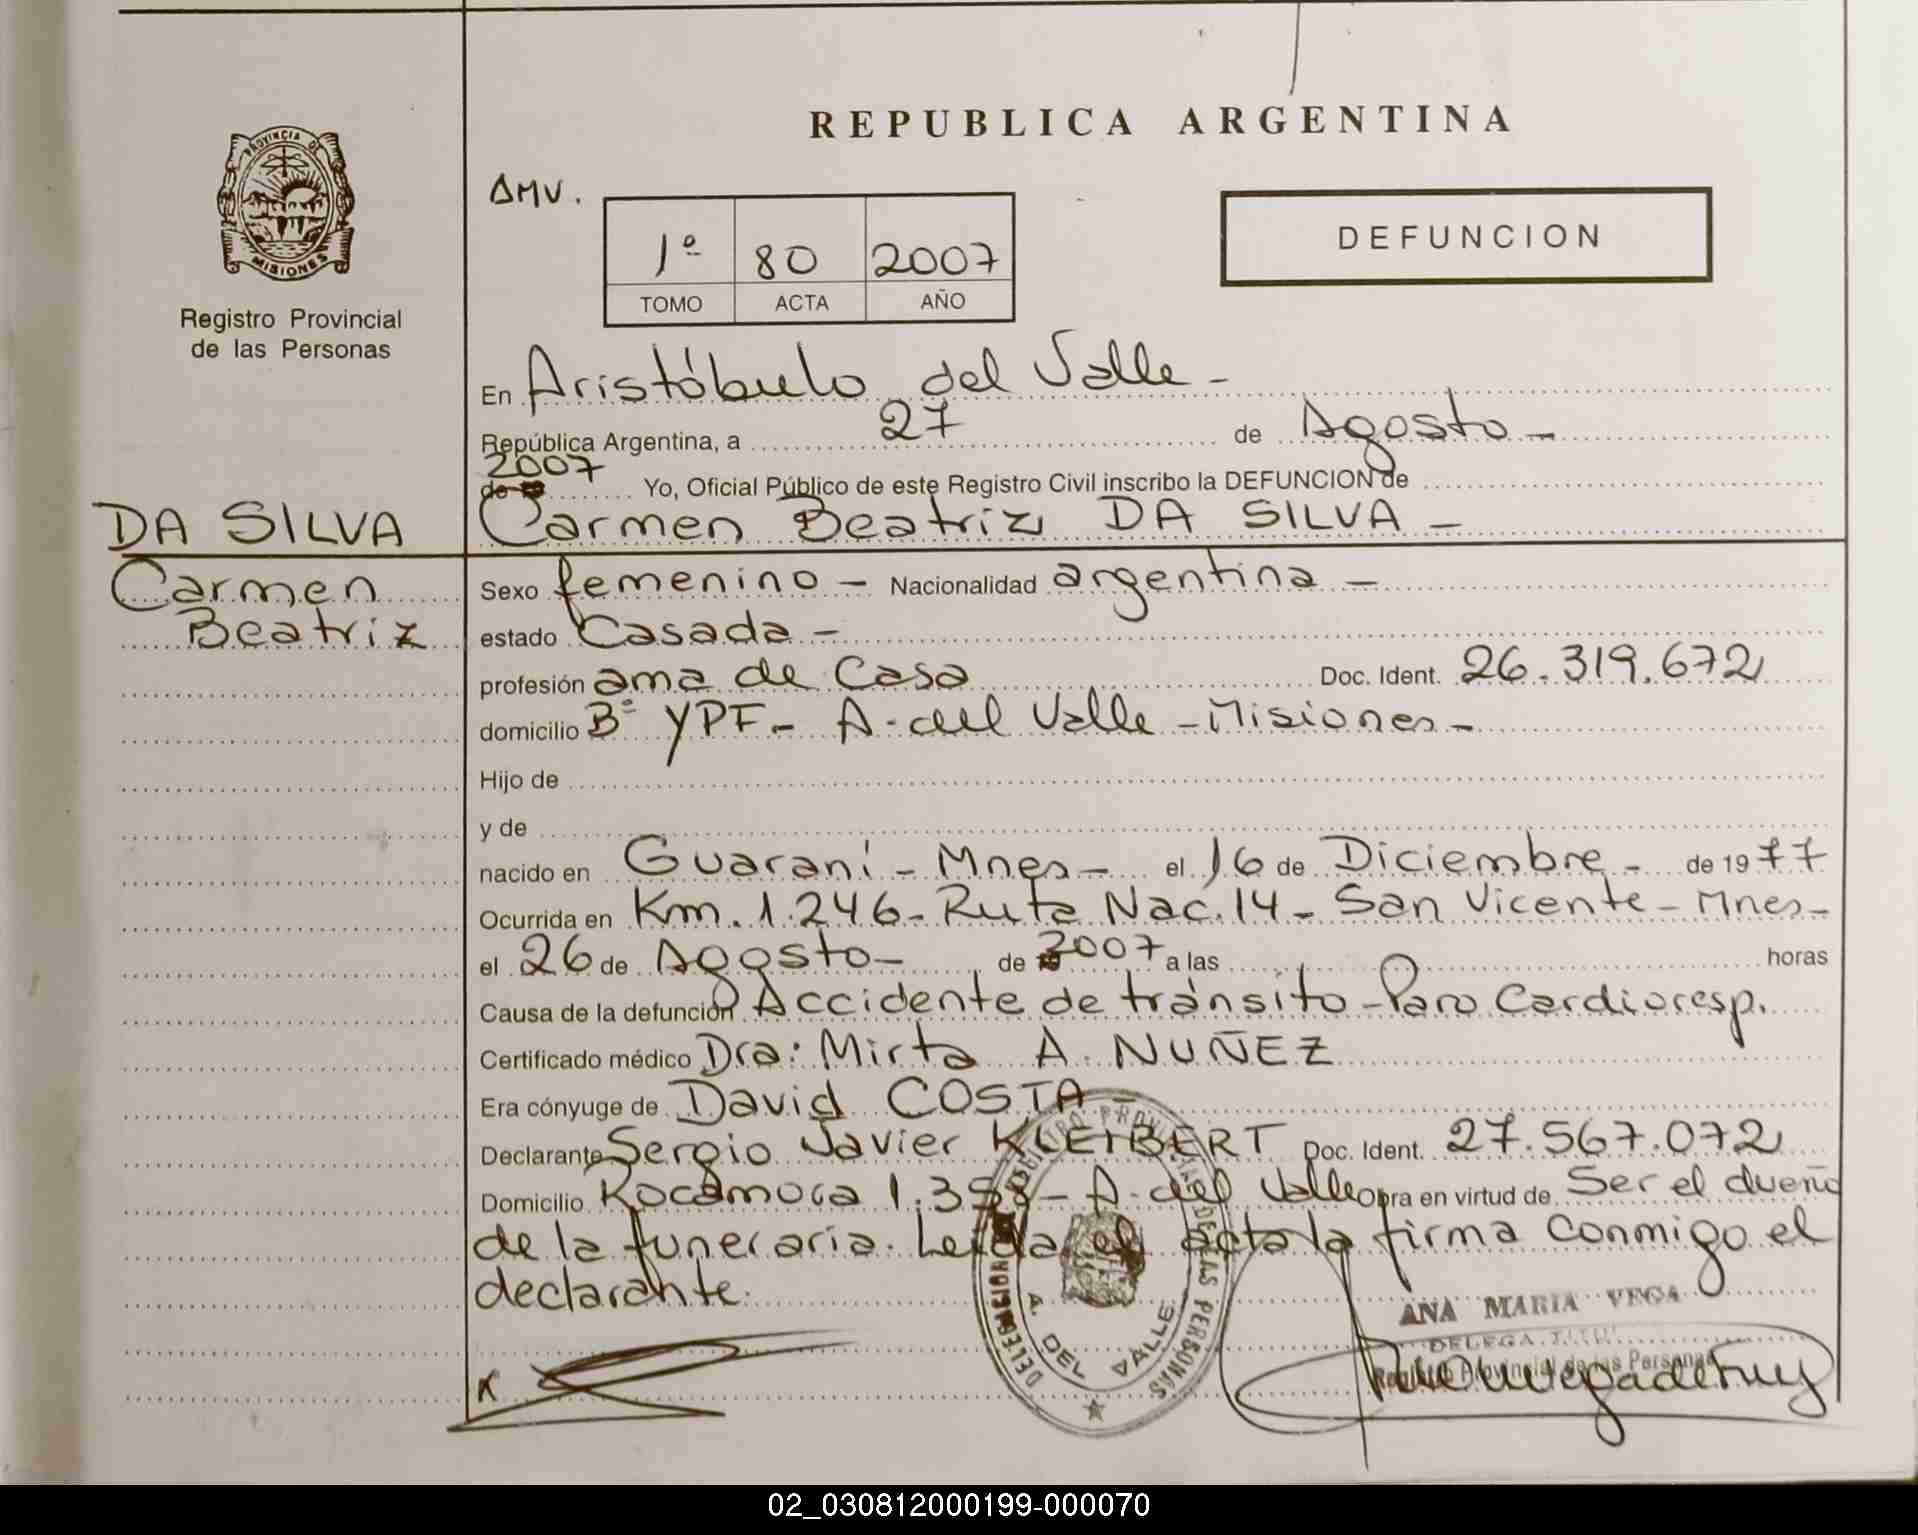 REPUBLICA ARGENTINA
PROVINCIA DE
MISIONES
Registro Provincial
de las Personas
AMV.
1º 80 2007
TOMO ACTA AÑO
DEFUNCION
En Aristóbulo del Valle -
República Argentina, a 27 de Agosto -
2007
de 19 Yo, Oficial Público de este Registro Civil inscribo la DEFUNCION de
DA SILVA
Carmen
Beatriz
Carmen Beatriz DA SILVA -
Sexo femenino - Nacionalidad argentina -
estado Casada -
profesión ama de Casa Doc. Ident. 26.319.672
domicilio Bº YPF - A. del Valle - Misiones -
Hijo de
y de
nacido en Guaraní - Mnes - el 16 de Diciembre - de 1977
Ocurrida en Km. 1.246 - Ruta Nac. 14 - San Vicente - Mnes -
el 26 de Agosto - de 2007 a las horas
Causa de la defunción Accidente de tránsito - Paro Cardioresp.
Certificado médico Dra: Mirta A. NUÑEZ
Era cónyuge de David COSTA -
Declarante Sergio Javier KLEIBERT Doc. Ident. 27.567.072
Domicilio Rocamora 1.358 - A. del Valle Obra en virtud de Ser el dueño
de la funeraria. Leida el acta la firma conmigo el
declarante.
REGISTRO PROVINCIAL DE LAS PERSONAS
A. DEL VALLE
ANA MARIA VEGA
Registro Provincial de las Personas
02_030812000199-000070